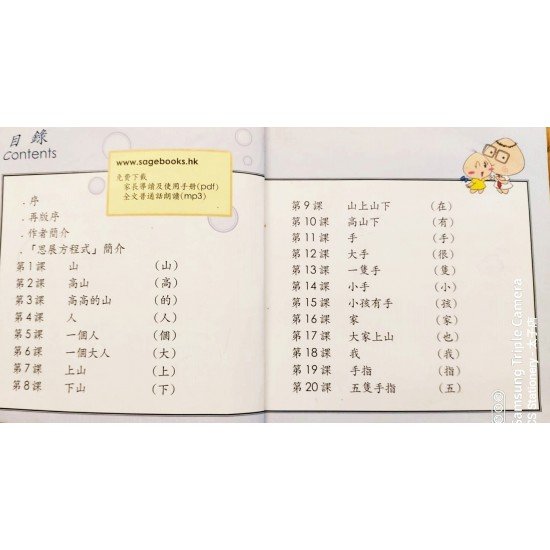 目錄
Contents
www.sagebooks.hk
免費下載
家長導讀及使用手册(pdf)
全文普通話朗讀(mp3)
．序
．再版序
．作者簡介
．「思展方程式」簡介
第1課 山 (山)
第2課 高山 (高)
第3課 高高的山 (的)
第4課 人 (人)
第5課 一個人 (個)
第6課 一個大人 (大)
第7課 上山 (上)
第8課 下山 (下)
第9課 山上山下 (在)
第10課 高山下 (有)
第11課 手 (手)
第12課 大手 (很)
第13課 一隻手 (隻)
第14課 小手 (小)
第15課 小孩有手 (孩)
第16課 家 (家)
第17課 大家上山 (也)
第18課 我 (我)
第19課 手指 (指)
第20課 五隻手指 (五)
Samsung Triple Camera
CS Stationery